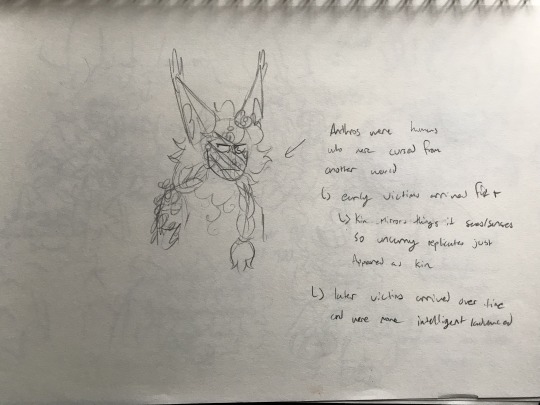 Anthros were humans
who were cursed from
another world
↳ early victims arrived first
↳ Kin mirrors things it sees/senses
so uncanny replicates just
Appeared as kin
↳ later victims arrived over time
and were more intelligent